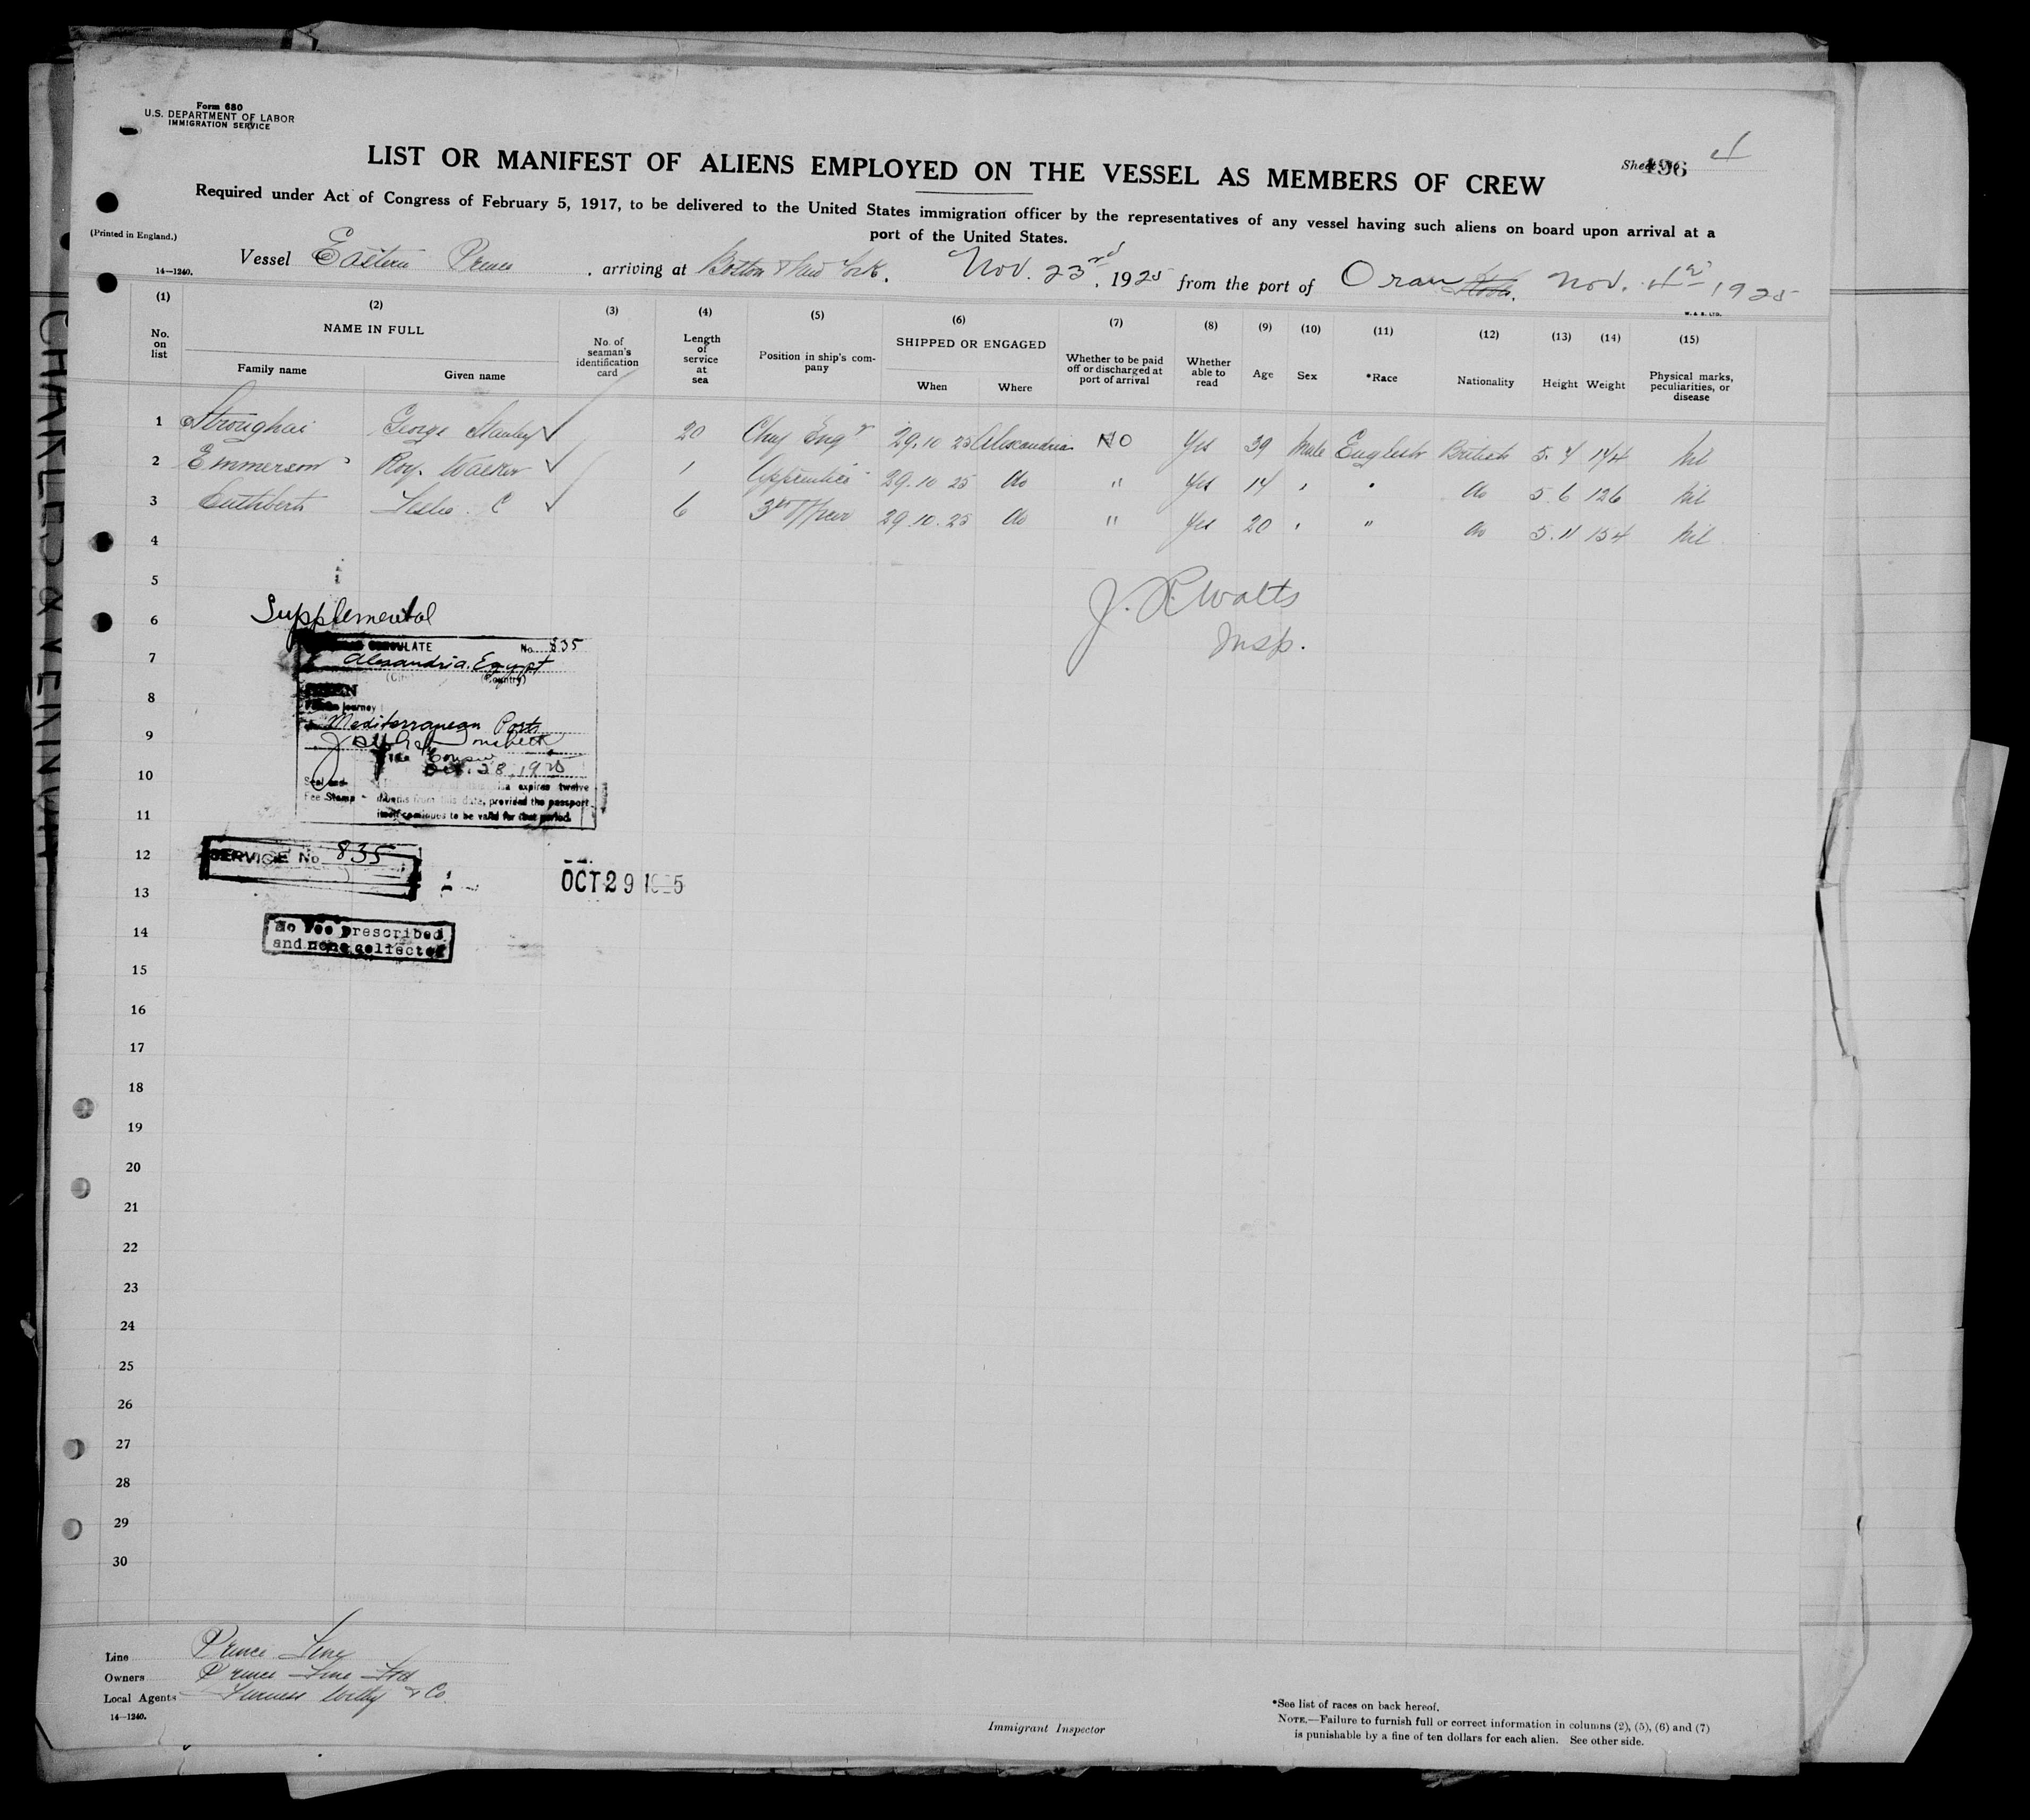 Form 680
U.S. DEPARTMENT OF LABOR
IMMIGRATION SERVICE
LIST OR MANIFEST OF ALIENS EMPLOYED ON THE VESSEL AS MEMBERS OF CREW
Sheet 496
Required under Act of Congress of February 5, 1917, to be delivered to the United States immigration officer by the representatives of any vessel having such aliens on board upon arrival at a
port of the United States.
(Printed in England.)
Vessel Eastern Prince, arriving at Boston & New York. Nov. 23rd, 1925 from the port of Oran Nov. 1925
14—1240.
W. & S. LTD.
(1) (2) (3) (4) (5) (6) (7) (8) (9) (10) (11) (12) (13) (14) (15)
No. on list NAME IN FULL Family name Given name No. of seaman's identification card Length of service at sea Position in ship's company SHIPPED OR ENGAGED When Where Whether to be paid off or discharged at port of arrival Whether able to read Age Sex *Race Nationality Height Weight Physical marks, peculiarities, or disease
1 George Stanley 20 Chief Engr 29.10 25 Alexandria NO Yes 39 Male English British 5. 144 Nil
2 Emmerson Roy. Walker 1 Apprentice 29.10 25 do " Yes 17 " " do 5.6 126 Nil
3 Cuthbert Leslie. C 6 3rd Officer 29.10.25 do " Yes 20 " " do 5.11 154 Nil
4
5
6
7
8
9
10
11
12
13
14
15
16
17
18
19
20
21
22
23
24
25
26
27
28
29
30
J. R. Watts
Insp.
Supplemental
CONSULATE No. 835
Alexandria, Egypt
(City) (Country)
SEEN
journey
Mediterranean Ports
Vice Consul
Oct. 28, 1925
Seal and
Fee Stamp
visa expires twelve
months from this date, provided the passport
itself continues to be valid for that period.
SERVICE No 835
OCT 29 1925
No fee prescribed
and none collected
Line Prince Line
Owners Prince Line Ltd
Local Agents Furness Withy & Co.
14—1240.
Immigrant Inspector
*See list of races on back hereof.
NOTE.—Failure to furnish full or correct information in columns (2), (5), (6) and (7)
is punishable by a fine of ten dollars for each alien. See other side.